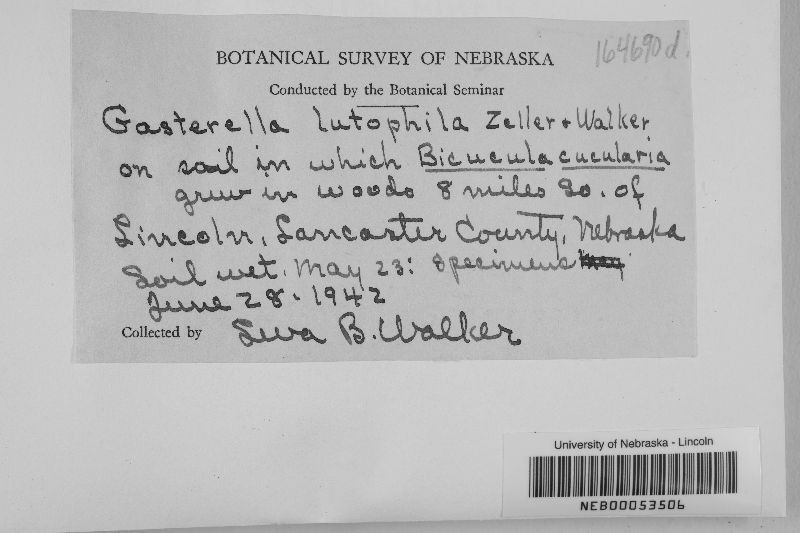 164690d.
BOTANICAL SURVEY OF NEBRASKA
Conducted by the Botanical Seminar
Gasterella lutophila Zeller & Walker
on soil in which Bicucula cucularia
grew in woods 8 miles So. of
Lincoln, Lancaster County, Nebraska
Soil wet. May 23: specimens
June 28. 1942
Collected by Leva B. Walker
University of Nebraska - Lincoln
NEB00053506